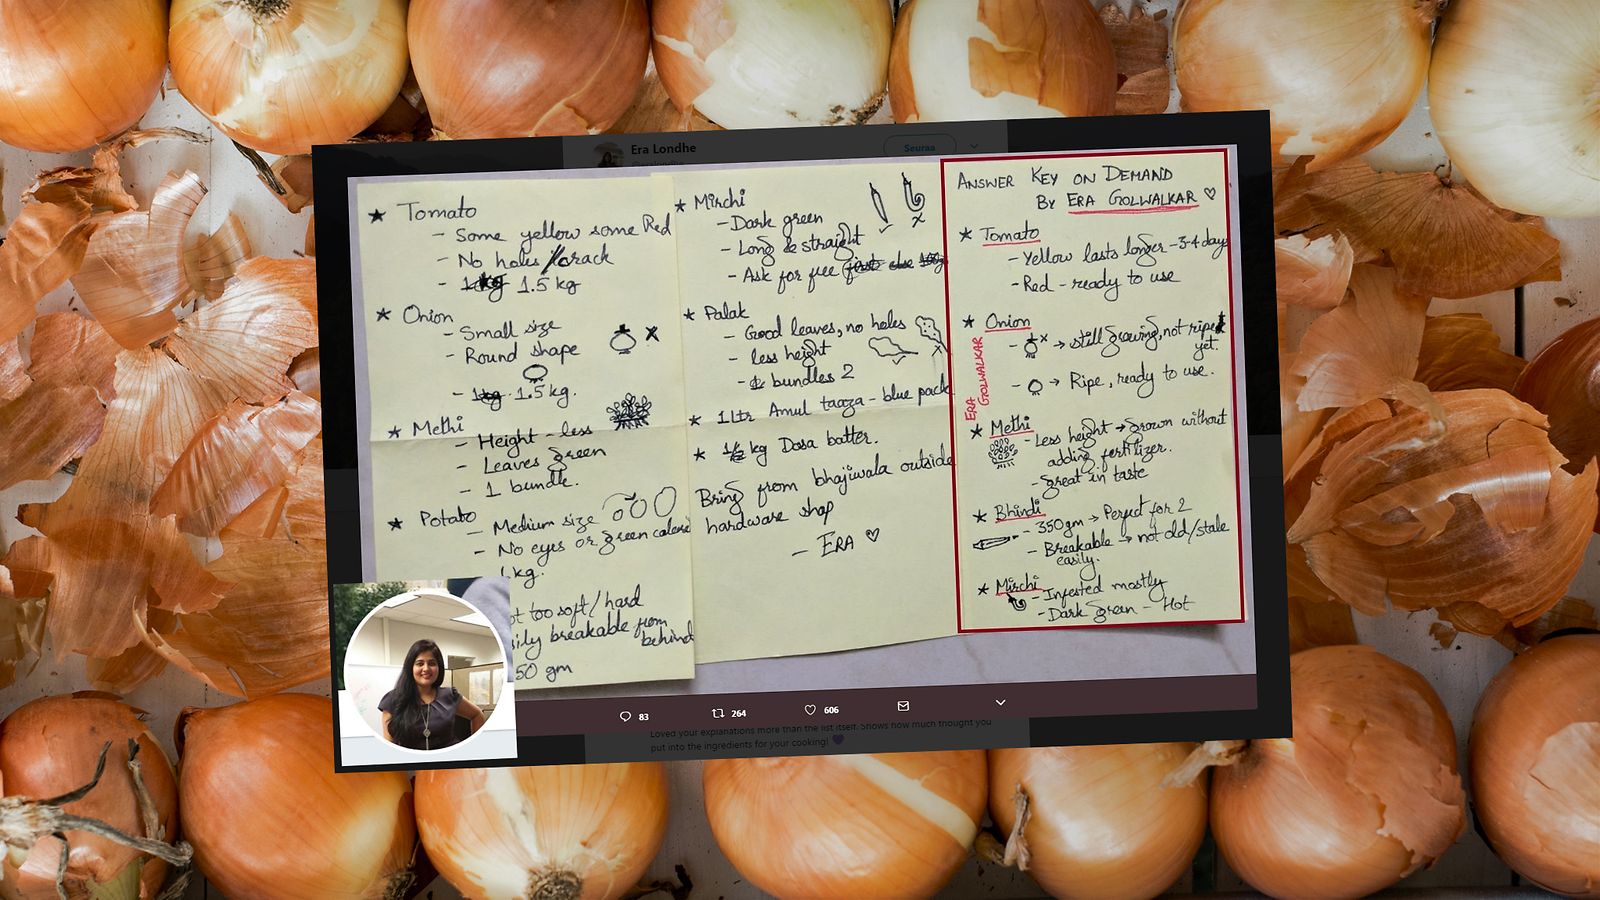 Era Londhe
Seuraa
★ Tomato
- Some yellow some Red
- No holes/crack
- 1.5 kg
★ Onion
- Small size
- Round shape
- 1kg 1.5 kg.
★ Methi
- Height - less
- Leaves green
- 1 bundle.
★ Potato
- Medium size
- No eyes or green
kg.
too soft/hard
breakable from
behind
50 gm
★ Mirchi
- Dark green
- Long & straight
- Ask for free
★ Palak
- Good leaves, no holes
- less height
- bundles 2
★ 1 Ltr Amul taaza - blue pack
★ kg Dosa batter.
Bring from bhajiwala outside
hardware shop
- ERA ♡
ANSWER KEY ON DEMAND
BY ERA GOLWALKAR ♡
★ Tomato
- Yellow lasts longer - 3-4 days
- Red - ready to use
★ Onion
- → still growing, not ripe
yet.
- → Ripe, ready to use.
ERA
GOLWALKAR
★ Methi
- Less height → grown without
adding fertilizer.
- Great in taste
★ Bhindi
- 350gm → Perfect for 2
- Breakable → not old/stale
easily.
★ Mirchi
- Infested mostly
- Dark green - Hot
83 264 606
Loved your explanations more than the list itself. Shows how much thought you
put into the ingredients for your cooking! 💜